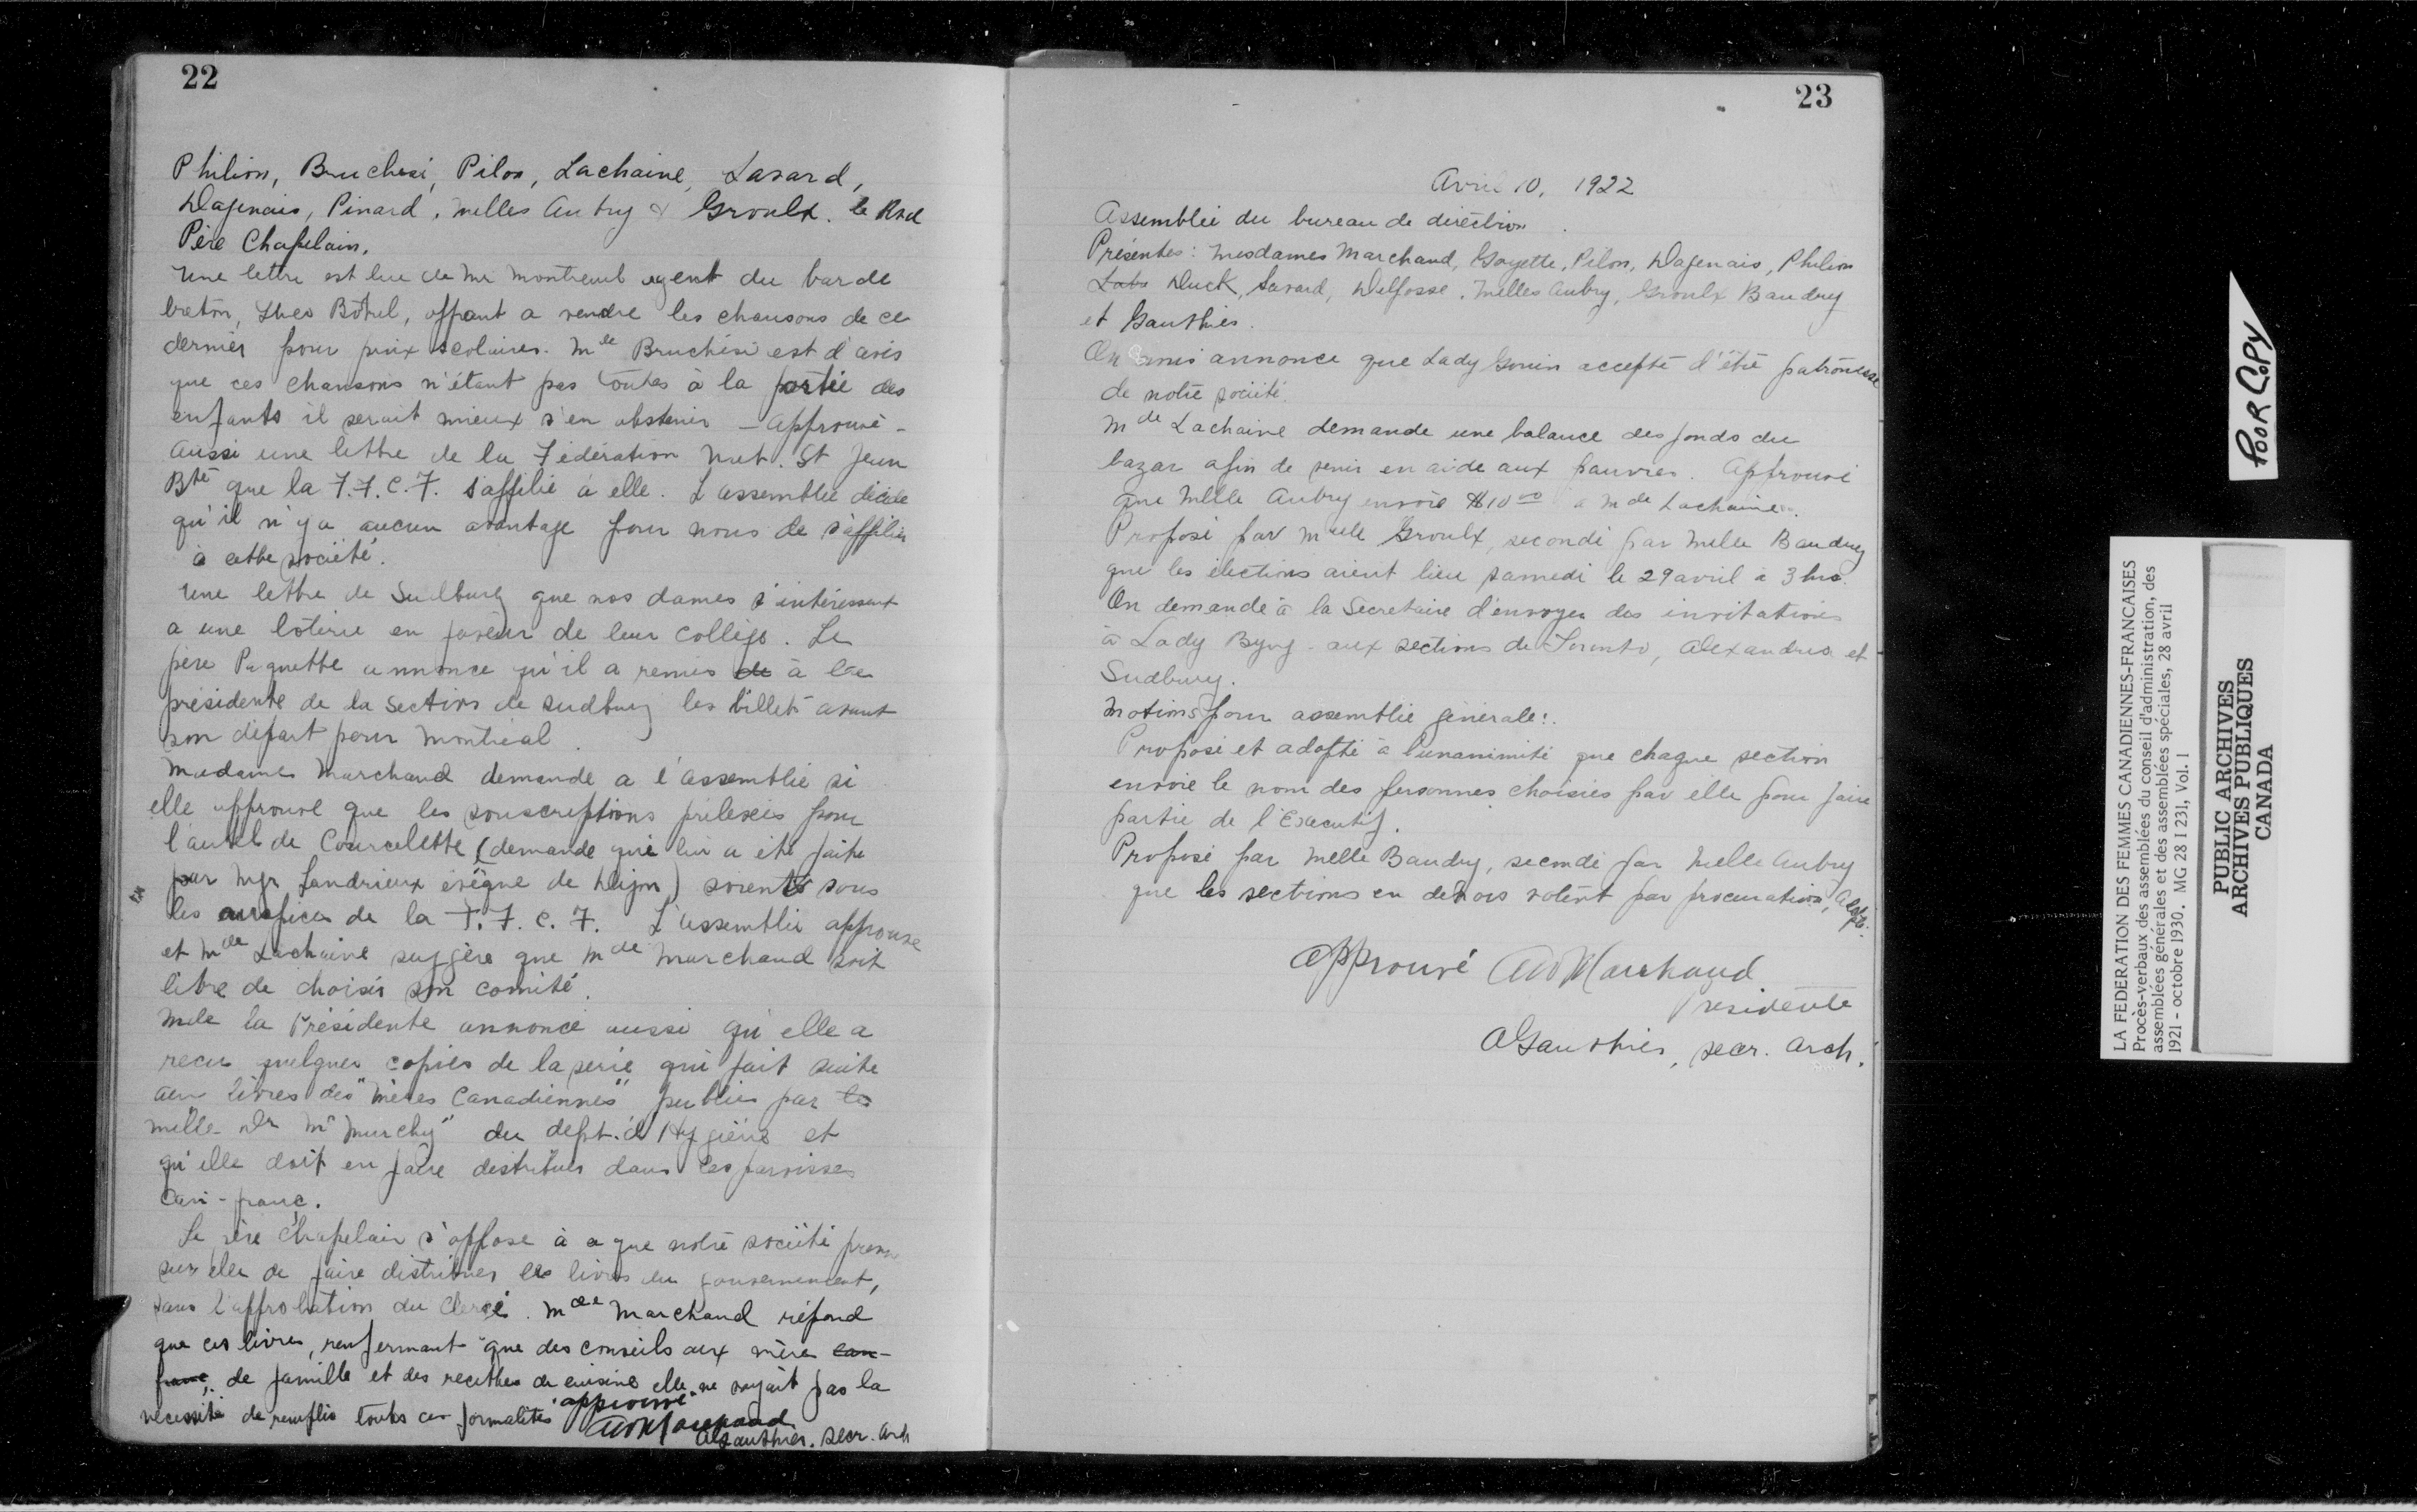 22
Philion, Bruchesi, Pilon, Lachaine, Savard,
Dagenais, Pinard, Melles Aubry & Groulx. le Rvd
Père Chapelain.
Une lettre est lue de Mr Montreuil agent du barde
breton, Theo Botrel, offrant a vendre les chansons de ce
dernier pour prix scolaires. Mde Bruchési est d'avis
que ces chansons n'étant pas toutes à la portée des
enfants il serait mieux s'en abstenir - approuvé -
Aussi une lettre de la Fédération Nat. St Jean
Bte que la F.F.C.F. s'affilie à elle. L'assemblée décide
qu'il n'y a aucun avantage pour nous de s'affilier
à cette société.
Une lettre de Sudbury que nos dames s'intéressent
a une loterie en faveur de leur collège. Le
père Paquette annonce qu'il a remis de à la
présidente de la section de Sudbury les billets avant
son départ pour Montréal.
Madame Marchand demande a l'assemblée si
elle approuve que les souscriptions prélevées pour
l'autel de Courcelette (demande qui lui a été faite
par Mgr Landrieux évêque de Dijon) soient sous
les auspices de la F.F.C.F. L'assemblée approuve
et Mde Lachaine suggère que Mde Marchand soit
libre de choisir son comité.
Mde la Présidente annonce aussi qu'elle a
recu quelques copies de la serie qui fait suite
aux livres des "Mères Canadiennes" publiés par les
Melle Dr McMurchy du dept. d'Hygiène et
qu'elle doit en faire distribuer dans les paroisses
Can-franç.
Le père Chapelain s'oppose à ce que notre société prenne
sur elle de faire distribuer les livres du gouvernement,
sans l'approbation du Clergé. Mde Marchand répond
que ces livres, renfermant que des conseils aux mères can-
franc, de famille et des recettes de cuisine elle ne voyait pas la
nécessité de remplir toutes ces formalités approuvé
Marchand
AGauthier. secr. arch
23
Avril 10, 1922
Assemblée du bureau de direction.
Présentes: Mesdames Marchand, Goyette, Pilon, Dagenais, Philion
Duck, Savard, Delfosse, Melles Aubry, Groulx Baudry
et Gauthier.
On annonce que Lady Gouin accepte d'être patronesse
de notre société.
Mde Lachaine demande une balance des fonds du
bazar afin de venir en aide aux pauvres. Approuvé
que Melle Aubry envoie $10 00 a Mde Lachaine.
Proposé par Melle Groulx, secondé par Melle Baudry
que les élections aient lieu samedi le 29 avril à 3 hrs.
On demande à la Secretaire d'envoyer des invitations
à Lady Byng - aux sections de Toronto, Alexandria et
Sudbury.
Motions pour assemblée générale:
Proposé et adopté à l'unanimité que chaque section
envoie le nom des personnes choisies par elle pour faire
partie de l'Executif.
Proposé par Melle Baudry, secondé par Melle Aubry
que les sections en dehors votent par procuration, adopté.
Approuvé Marchand
Presidente
AGauthier, secr. arch.
POOR COPY
LA FEDERATION DES FEMMES CANADIENNES-FRANCAISES
Procès-verbaux des assemblées du conseil d'administration, des
assemblées générales et des assemblées spéciales, 28 avril
1921 - octobre 1930. MG 28 I 231, Vol. 1
PUBLIC ARCHIVES
ARCHIVES PUBLIQUES
CANADA